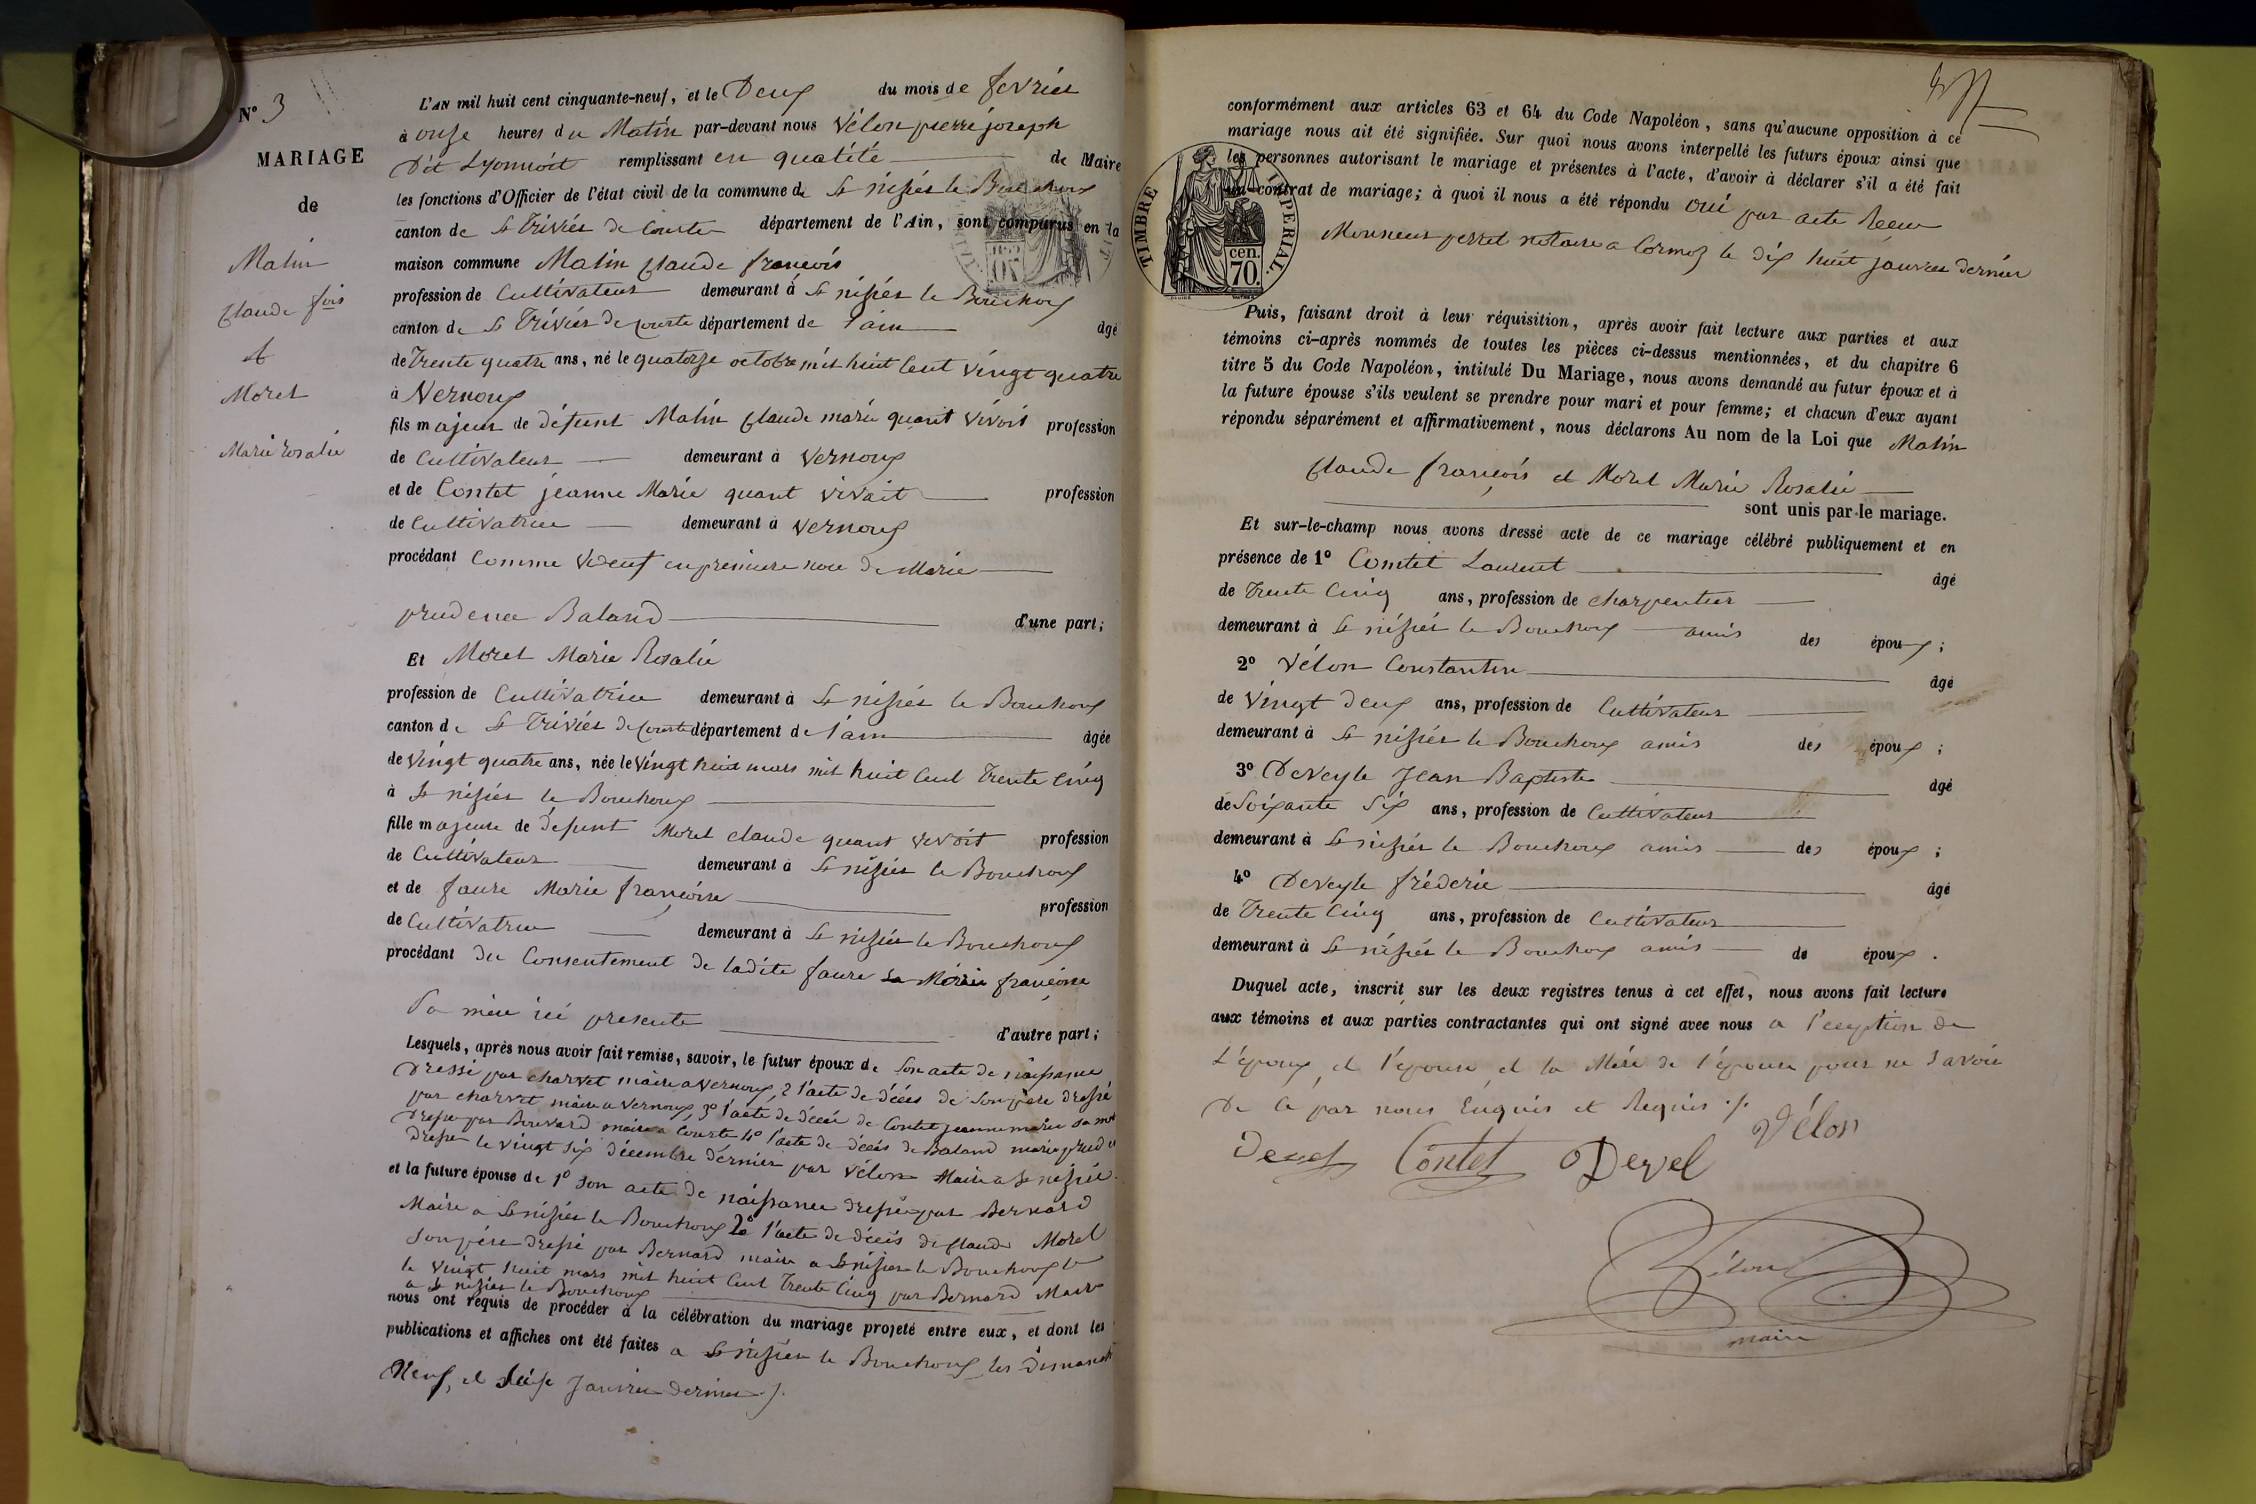 N° 3
MARIAGE
de
Matin
Claude fois
et
Morel
Marie Rosalie
L'AN mil huit cent cinquante-neuf, et le Deux du mois de fevrier
à onze heures du Matin par-devant nous Vélon pierre joseph
Dit Lyonnoit remplissant en qualité de Maire
les fonctions d'Officier de l'état civil de la commune de St nisier le Bouchoux
canton de St Trivier de Courte département de l'Ain, sont comparus en la
maison commune Matin Claude françois
profession de Cultivateur demeurant à St nisier le Bouchoux
canton de St Trivier de Courte département de l'ain âgé
de Trente quatre ans, né le quatorze octobre mil huit Cent vingt quatre
à Vernoux
fils majeur de défunt Matin Claude marie quant vivoit profession
de Cultivateur demeurant à Vernoux
et de Contet jeanne Marie quant vivait profession
de Cultivatrice demeurant à Vernoux
procédant Comme Veuf en premiere noce de Marie
prudence Baland d'une part;
Et Morel Marie Rosalie
profession de Cultivatrice demeurant à St nisier le Bouchoux
canton de St Trivier de Courte département de l'ain âgée
de Vingt quatre ans, née le Vingt huit mars mil huit Cent Trente Cinq
à St nisier le Bouchoux
fille majeure de défunt Morel Claude quant vivoit profession
de Cultivateur demeurant à St nisier le Bouchoux
et de faure Marie françoise profession
de Cultivatrice demeurant à St nisier le Bouchoux
procédant du Consentement de ladite faure Marie françoise
Sa mère ici presente d'autre part;
Lesquels, après nous avoir fait remise, savoir, le futur époux de son acte de naissance
Dressé par charvet maire a vernoux, 2 l'acte de décés de son père dressé
par charvet maire a vernoux 3° l'acte de décée de Contet jeanne marie sa
Dressé par Bouvard maire a Courte 4° l'acte de décés de Baland marie prud
Dressé le vingt Six décembre dernier par Vélon Maire a St nisier
et la future épouse de 1° Son acte de naissance dressé par Bernard
Maire a St nisier le Bouchoux 2° l'acte de décés de Claude Morel
Son père dressé par Bernard maire a St nisier le Bouchoux le
le vingt huit mars mil huit Cent Trente Cinq par Bernard Maire
a St nisier le Bouchoux
nous ont requis de procéder à la célébration du mariage projeté entre eux, et dont les
publications et affiches ont été faites a St nisier le Bouchoux les Dimanch
Neuf, et Seize Janvier dernier ./.
conformément aux articles 63 et 64 du Code Napoléon, sans qu'aucune opposition à ce
mariage nous ait été signifiée. Sur quoi nous avons interpellé les futurs époux ainsi que
les personnes autorisant le mariage et présentes à l'acte, d'avoir à déclarer s'il a été fait
un contrat de mariage; à quoi il nous a été répondu oui par acte Recu
Monsieur perret notaire a Cormoz le dix huit janvier dernier
TIMBRE IMPERIAL.
cen.
70.
Puis, faisant droit à leur réquisition, après avoir fait lecture aux parties et aux
témoins ci-après nommés de toutes les pièces ci-dessus mentionnées, et du chapitre 6
titre 5 du Code Napoléon, intitulé Du Mariage, nous avons demandé au futur époux et à
la future épouse s'ils veulent se prendre pour mari et pour femme; et chacun d'eux ayant
répondu séparément et affirmativement, nous déclarons Au nom de la Loi que Matin
Claude françois et Morel Marie Rosalie
sont unis par le mariage.
Et sur-le-champ nous avons dressé acte de ce mariage célébré publiquement et en
présence de 1° Comtet Laurent âgé
de Trente Cinq ans, profession de charpentier
demeurant à St nisier le Bouchoux amis des époux;
2° Vélon Constantin âgé
de Vingt Deux ans, profession de Cultivateur
demeurant à St nisier le Bouchoux amis des époux;
3° Deveyle Jean Baptiste âgé
de Soixante Six ans, profession de Cultivateur
demeurant à St nisier le Bouchoux amis des époux;
4° Deveyle fréderic âgé
de Trente Cinq ans, profession de Cultivateur
demeurant à St nisier le Bouchoux amis de époux.
Duquel acte, inscrit sur les deux registres tenus à cet effet, nous avons fait lecture
aux témoins et aux parties contractantes qui ont signé avec nous a l'exeption de
L'époux, et l'épouse, et la Mère de l'épouse pour ne Savoir
De ce par nous Enquis et Requis ./.
Vélon
Contet Devel
Vélon
maire